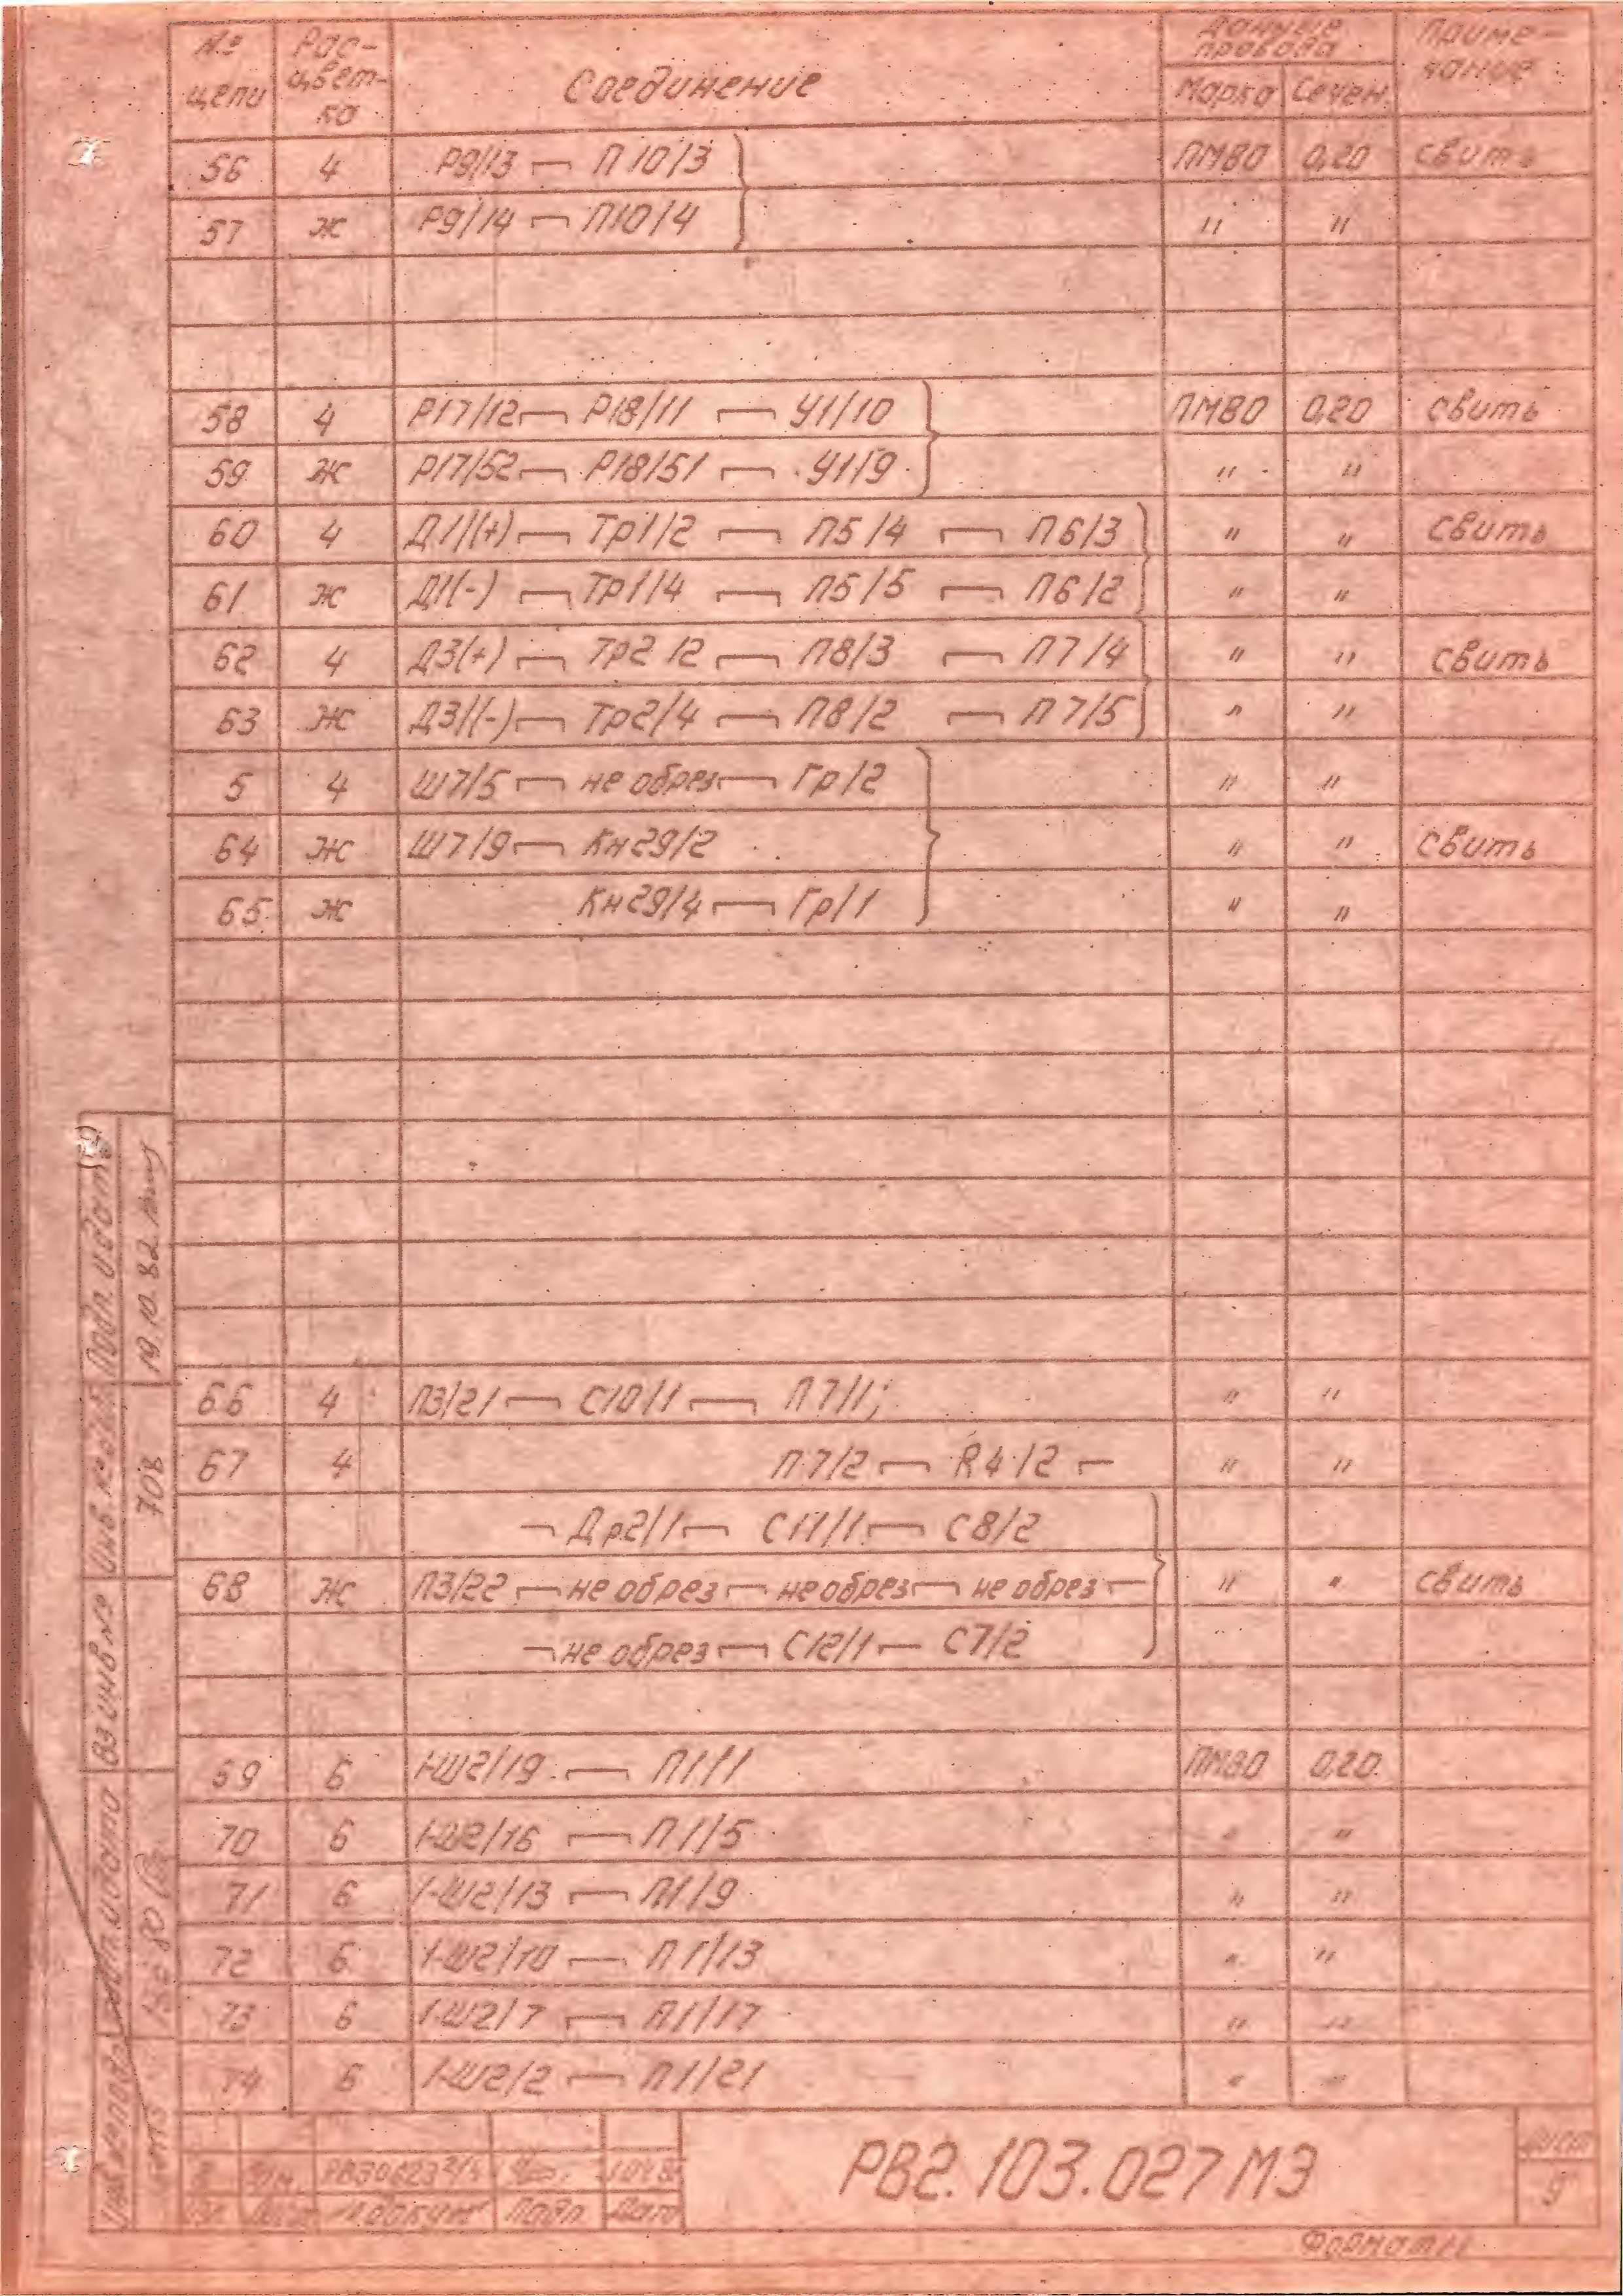 № цепи Рас-цвет-ка Соединение Данные провода Марка Сечен. Приме-чание
56 4 Р9/13 — П10/3 ПМВО 0,20 свить
57 Ж Р9/14 — П10/4 " "
58 4 Р17/12 — Р18/11 — У1/10 ПМВО 0,20 свить
59 Ж Р17/52 — Р18/51 — У1/9 " "
60 4 Д1/(+) — Тр1/2 — П5/4 — П6/3 " " свить
61 Ж Д1(-) — Тр1/4 — П5/5 — П6/2 " "
62 4 Д3(+) — Тр2/2 — П8/3 — П7/4 " " свить
63 Ж Д3/(-) — Тр2/4 — П8/2 — П7/5 " "
5 4 Ш7/5 — не обрез — Гр/2 " "
64 Ж Ш7/9 — Кн29/2 " " свить
65 Ж Кн29/4 — Гр/1 " "
66 4 П3/21 — С10/1 — П7/1; " "
67 4 П7/2 — R4/2 — " "
— Др2/1 — С11/1 — С8/2
68 Ж П3/22 — не обрез — не обрез — не обрез — " " свить
— не обрез — С12/1 — С7/2
69 Б 1-Ш2/19 — П1/1 ПМВО 0,20
70 Б 1-Ш2/16 — П1/5 " "
71 Б 1-Ш2/13 — П1/9 " "
72 Б 1-Ш2/10 — П1/13 " "
73 Б 1-Ш2/7 — П1/17 " "
74 Б 1-Ш2/2 — П1/21 " "
Подп. и дата 19.10.82
Инв. № дубл. 708
Вз. инв. №
Подп. и дата
Инв. № подл.
Лист № докум Подп Дата
РВ2.103.027МЭ
Лист
9
Формат 11